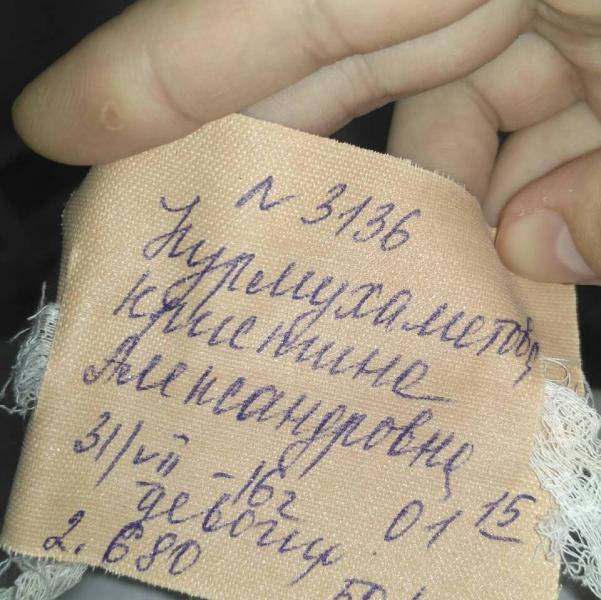 N 3136
Нурмухаметова
Кристина
Александровна
31/VII-16г 01 15
девочка
2.680